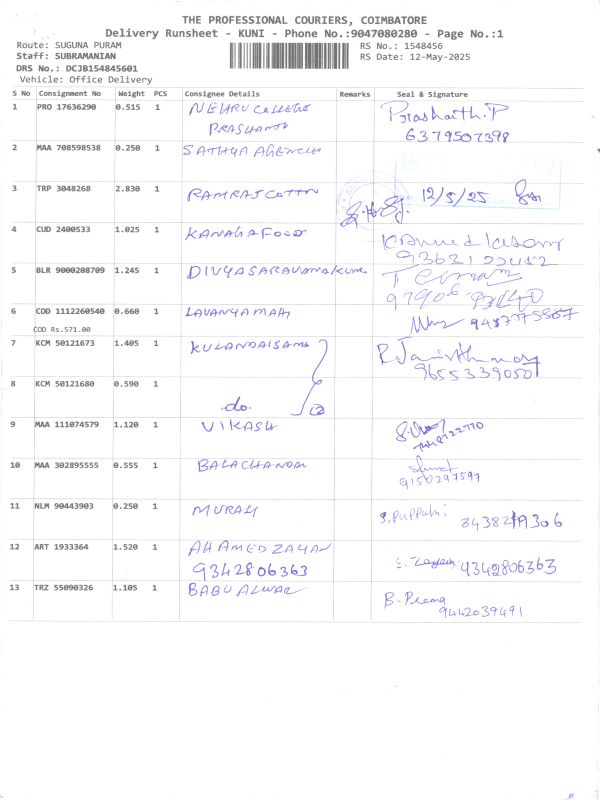 THE PROFESSIONAL COURIERS, COIMBATORE
Delivery Runsheet - KUNI - Phone No.:9047080280 - Page No.:1
Route: SUGUNA PURAM
RS No.: 1548456
Staff: SUBRAMANIAN
RS Date: 12-May-2025
DRS No.: DCJB154845601
Vehicle: Office Delivery
S No Consignment No Weight PCS Consignee Details Remarks Seal & Signature
1 PRO 17636290 0.515 1 NEHRU COLLEGE Prashanth.P
PRASHANTH 6379507398
2 MAA 708598538 0.250 1 SATHYA AGENCY
3 TRP 3048268 2.830 1 RAMRAJ COTTON 12/5/25
4 CUD 2400533 1.025 1 KANAGA FOOD
5 BLR 9000208709 1.245 1 DIVYASARAVANAKUM
6 COD 1112260540 0.660 1 LAVANYAMAH
COD Rs.571.00
7 KCM 50121673 1.405 1 KULANDAISAMI
9655339050
8 KCM 50121680 0.590 1 do
9 MAA 111074579 1.120 1 VIKASH
10 MAA 302895555 0.555 1 BALACHANDA
9150297597
11 NLM 90443903 0.250 1 MURALI
12 ART 1933364 1.520 1 AHAMED ZAYAN 9342806363
9342806363
13 TRZ 55090326 1.105 1 BABU ALWAR B. Prema
9442039491